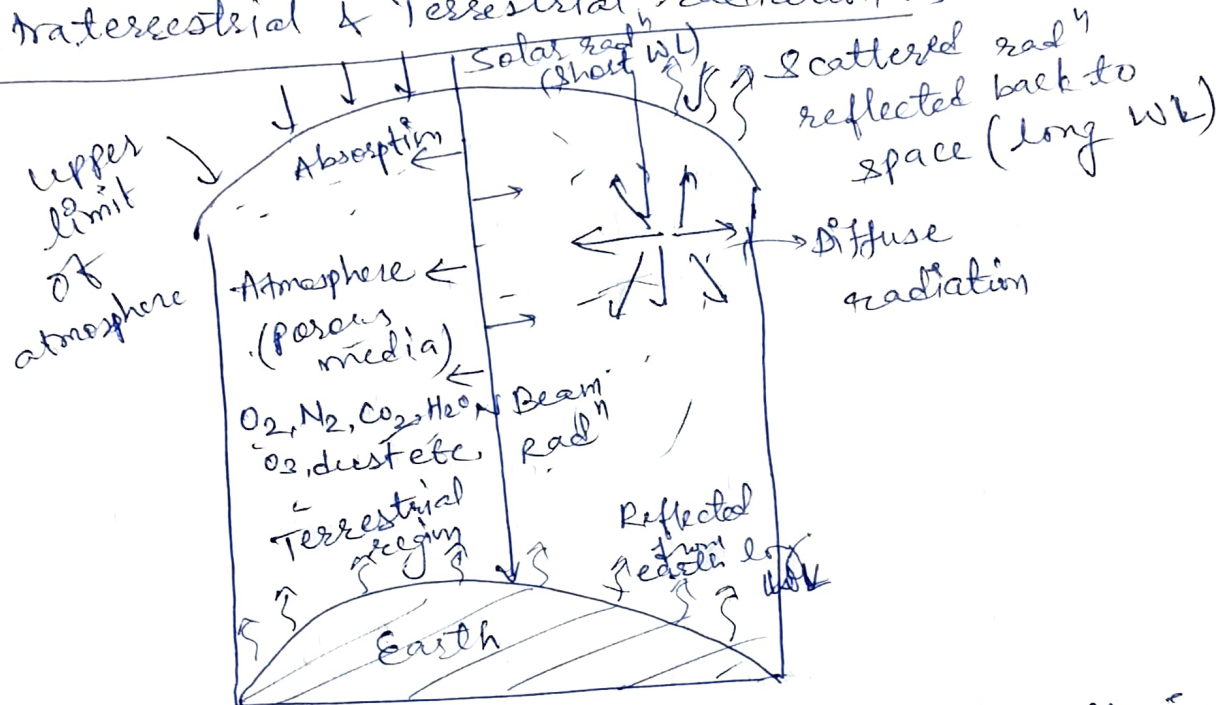 traterrestrial & Terrestrial
Solar radⁿ
(short WL)
Scattered radⁿ
reflected back to
space (long WL)
upper
limit
of
atmosphere
Absorption
Diffuse
radiation
Atmosphere
(Porous
media)
O2, N2, CO2, H2O
O3, dust etc.
Beam
Radⁿ
Terrestrial
region
Reflected
from
earth
Earth